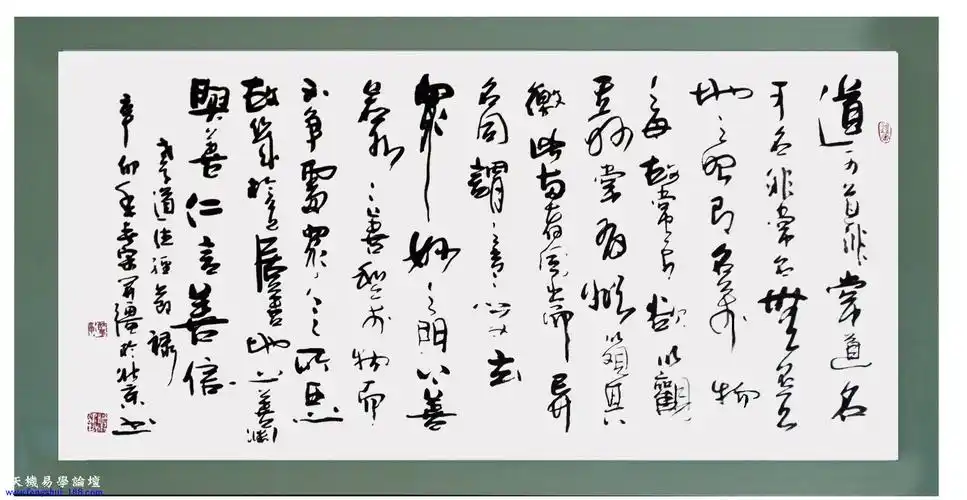 道可道非常道名
可名非常名無名天
地之始有名萬物
之母故常無欲以觀
其妙常有欲以觀其
徼此兩者同出而異
名同謂之玄玄之又玄
眾妙之門上善
若水水善利萬物而
不爭處眾人之所惡
故幾於道居善地心善淵
與善仁言善信
老子道德經節錄
辛卯年春宋疆於北京書
天機易學論壇
www.fengshui-168.com